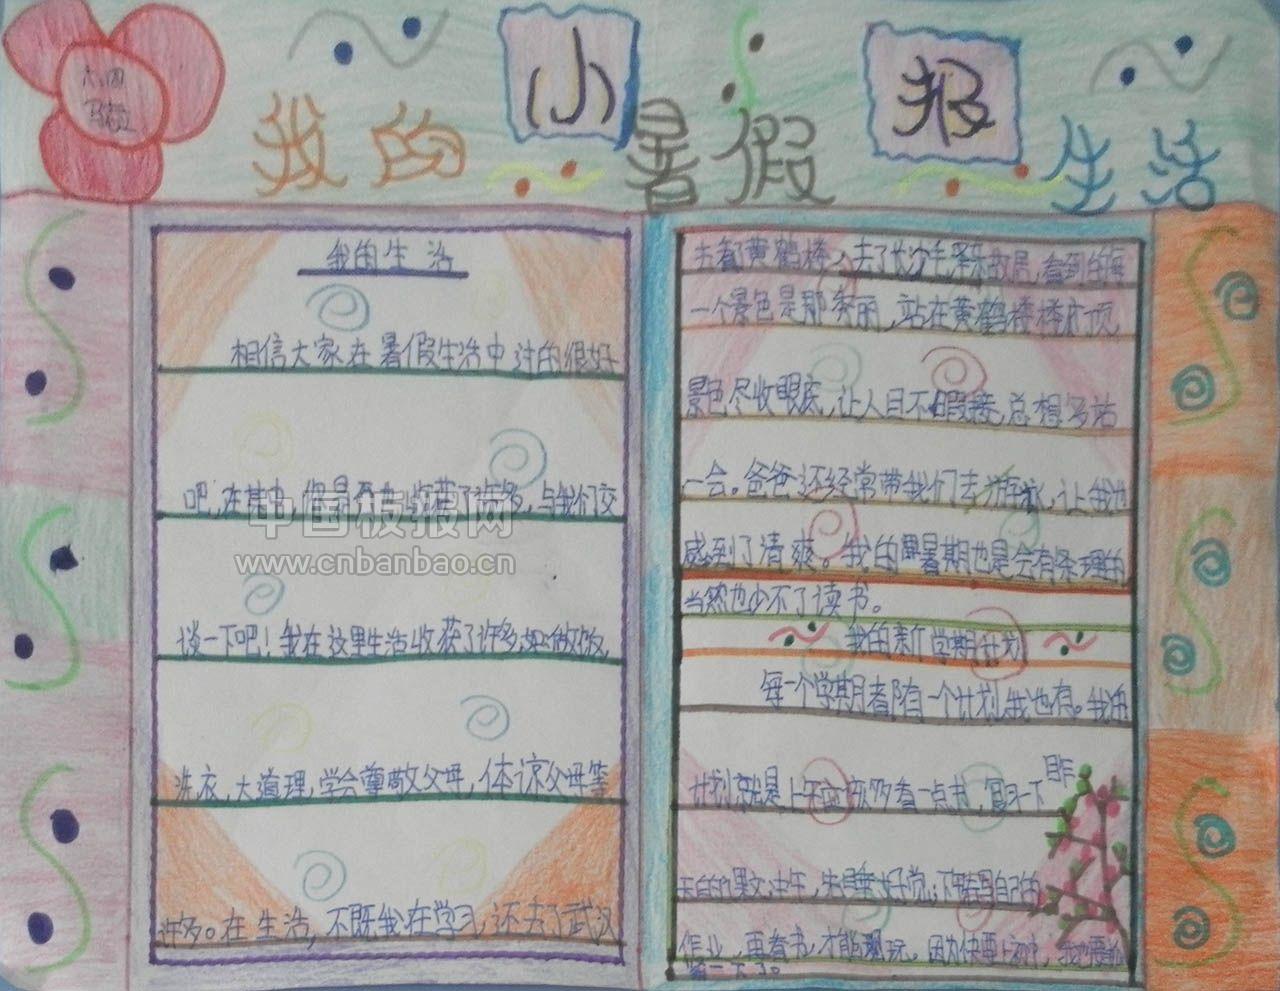 六、四
小 报
我的暑假生活
我的生活
相信大家在暑假生活中过的很好
吧,在其中,你是否也收获了许多,与我们交
谈一下吧!我在这里生活收获了许多,如:做饭,
洗衣,大道理,学会尊敬父母,体谅父母等
许多。在生活,不既我在学习,还去了武汉
去看黄鹤楼,去了长沙毛泽东故居,看到的每
一个景色是那秀丽,站在黄鹤楼楼顶
景色尽收眼底,让人目不暇接,总想多站
一会。爸爸还经常带我们去游泳,让我也
感到了清爽。我的暑期也是会有条理的
当然也少不了读书。
我的新学期计划
每一个学期都有一个计划,我也有。我的
计划就是上午应该多看一点书,复习一下昨
天的课文,中午,先睡好觉,下午写自己的
作业,再看书,才能玩。因为快要上初中,我也要
一下了。
中国板报网
www.cnbanbao.cn